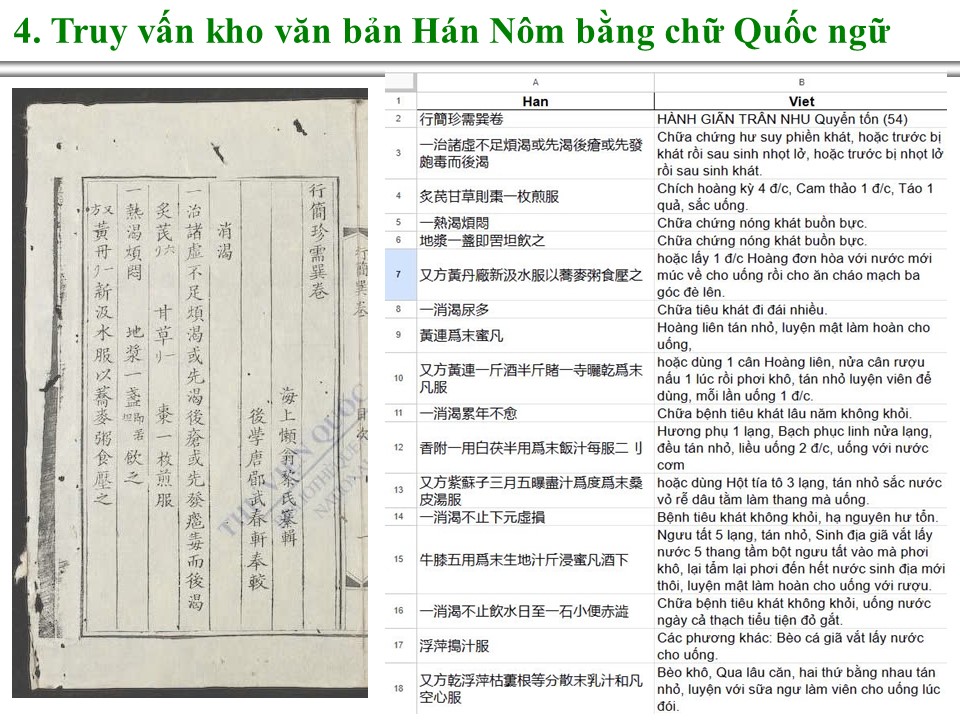 4. Truy vấn kho văn bản Hán Nôm bằng chữ Quốc ngữ
行簡珍需巽卷
消渴
海上懶翁黎氏纂輯
後學唐郿武春軒奉較
一治諸虛不足煩渴或先渴後瘡或先發瘡毒而後渴
炙芪六刂 甘草一刂 棗一枚煎服
一熱渴煩悶 地漿一盞 飲之
又方黃丹一刂新汲水服以蕎麥粥食壓之
行簡巽卷
目次
THƯ VIỆN QUỐC
BIBLIOTHÈQUE
NATIONAL
A B
1 Han Viet
2 行簡珍需巽卷 HÀNH GIÃN TRÂN NHU Quyển tốn (54)
3 一治諸虛不足煩渴或先渴後瘡或先發皰毒而後渴 Chữa chứng hư suy phiền khát, hoặc trước bị khát rồi sau sinh nhọt lở, hoặc trước bị nhọt lở rồi sau sinh khát.
4 炙芪甘草則棗一枚煎服 Chích hoàng kỳ 4 đ/c, Cam thảo 1 đ/c, Táo 1 quả, sắc uống.
5 一熱渴煩悶 Chữa chứng nóng khát buồn bực.
6 地漿一盞即罟坦飲之 Chữa chứng nóng khát buồn bực.
7 又方黃丹廠新汲水服以蕎麥粥食壓之 hoặc lấy 1 đ/c Hoàng đơn hòa với nước mới múc về cho uống rồi cho ăn cháo mạch ba góc đè lên.
8 一消渴尿多 Chữa tiêu khát đi đái nhiều.
9 黃連爲末蜜凡 Hoàng liên tán nhỏ, luyện mật làm hoàn cho uống,
10 又方黃連一斤酒半斤賭一寺曬乾爲末凡服 hoặc dùng 1 cân Hoàng liên, nửa cân rượu nấu 1 lúc rồi phơi khô, tán nhỏ luyện viên để dùng, mỗi lần uống 1 đ/c.
11 一消渴累年不愈 Chữa bệnh tiêu khát lâu năm không khỏi.
12 香附一用白茯半用爲末飯汁每服二刂 Hương phụ 1 lạng, Bạch phục linh nửa lạng, đều tán nhỏ, liều uống 2 đ/c, uống với nước cơm
13 又方紫蘇子三月五曝盡汁爲度爲末桑皮湯服 hoặc dùng Hột tía tô 3 lạng, tán nhỏ sắc nước vỏ rễ dâu tằm làm thang mà uống.
14 一消渴不止下元虛損 Bệnh tiêu khát không khỏi, hạ nguyên hư tổn.
15 牛膝五用爲末生地汁斤浸蜜凡酒下 Ngưu tất 5 lạng, tán nhỏ, Sinh địa giã vắt lấy nước 5 thang tầm bột ngưu tất vào mà phơi khô, lại tẩm lại phơi đến hết nước sinh địa mới thôi, luyện mật làm hoàn cho uống với rượu.
16 一消渴不止飲水日至一石小便赤澁 Chữa bệnh tiêu khát không khỏi, uống nước ngày cả thạch tiểu tiện đỏ gắt.
17 浮萍搗汁服 Các phương khác: Bèo cá giã vắt lấy nước cho uống.
18 又方乾浮萍枯蔞根等分散末乳汁和凡空心服 Bèo khô, Qua lâu căn, hai thứ bằng nhau tán nhỏ, luyện với sữa ngư làm viên cho uống lúc đói.